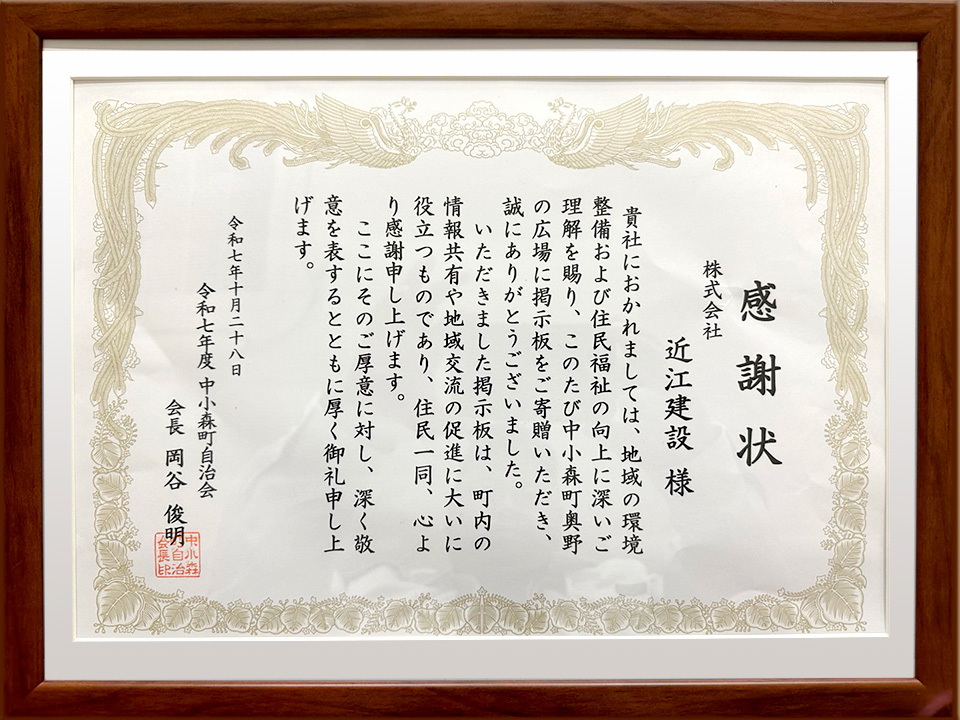 感謝状
株式会社
近江建設 様
貴社におかれましては、地域の環境
整備および住民福祉の向上に深いご
理解を賜り、このたび中小森町奥野
の広場に掲示板をご寄贈いただき、
誠にありがとうございました。
いただきました掲示板は、町内の
情報共有や地域交流の促進に大いに
役立つものであり、住民一同、心よ
り感謝申し上げます。
ここにそのご厚意に対し、深く敬
意を表するとともに厚く御礼申し上
げます。
令和七年十月二十八日
令和七年度 中小森町自治会
会長 岡谷 俊明
中小森
自治
会長印